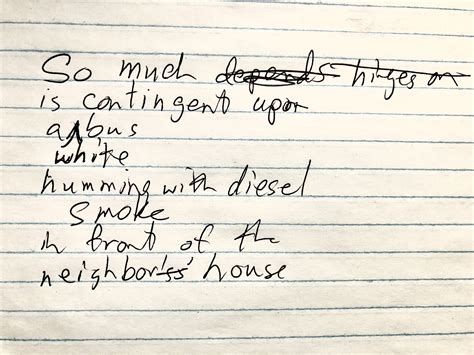 So much depends hinges on
is contingent upon
a bus
white
humming with diesel
smoke
in front of the
neighbor's's' house